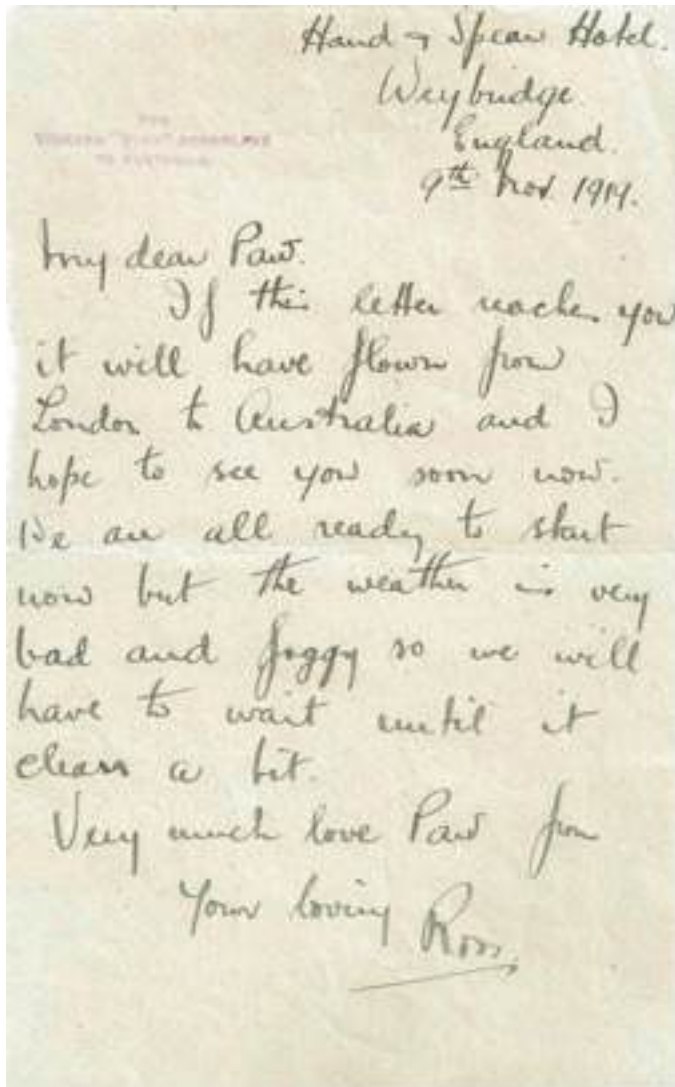 Hand & Spear Hotel.
Weybridge.
England.
9th Nov. 1919.
PER
VICKERS "VIMY" AEROPLANE
TO AUSTRALIA
My dear Paw.
If this letter reaches you
it will have flown from
London to Australia and I
hope to see you soon now.
We are all ready to start
now but the weather is very
bad and foggy so we will
have to wait until it
clears a bit.
Very much love Paw from
Your loving Ross.